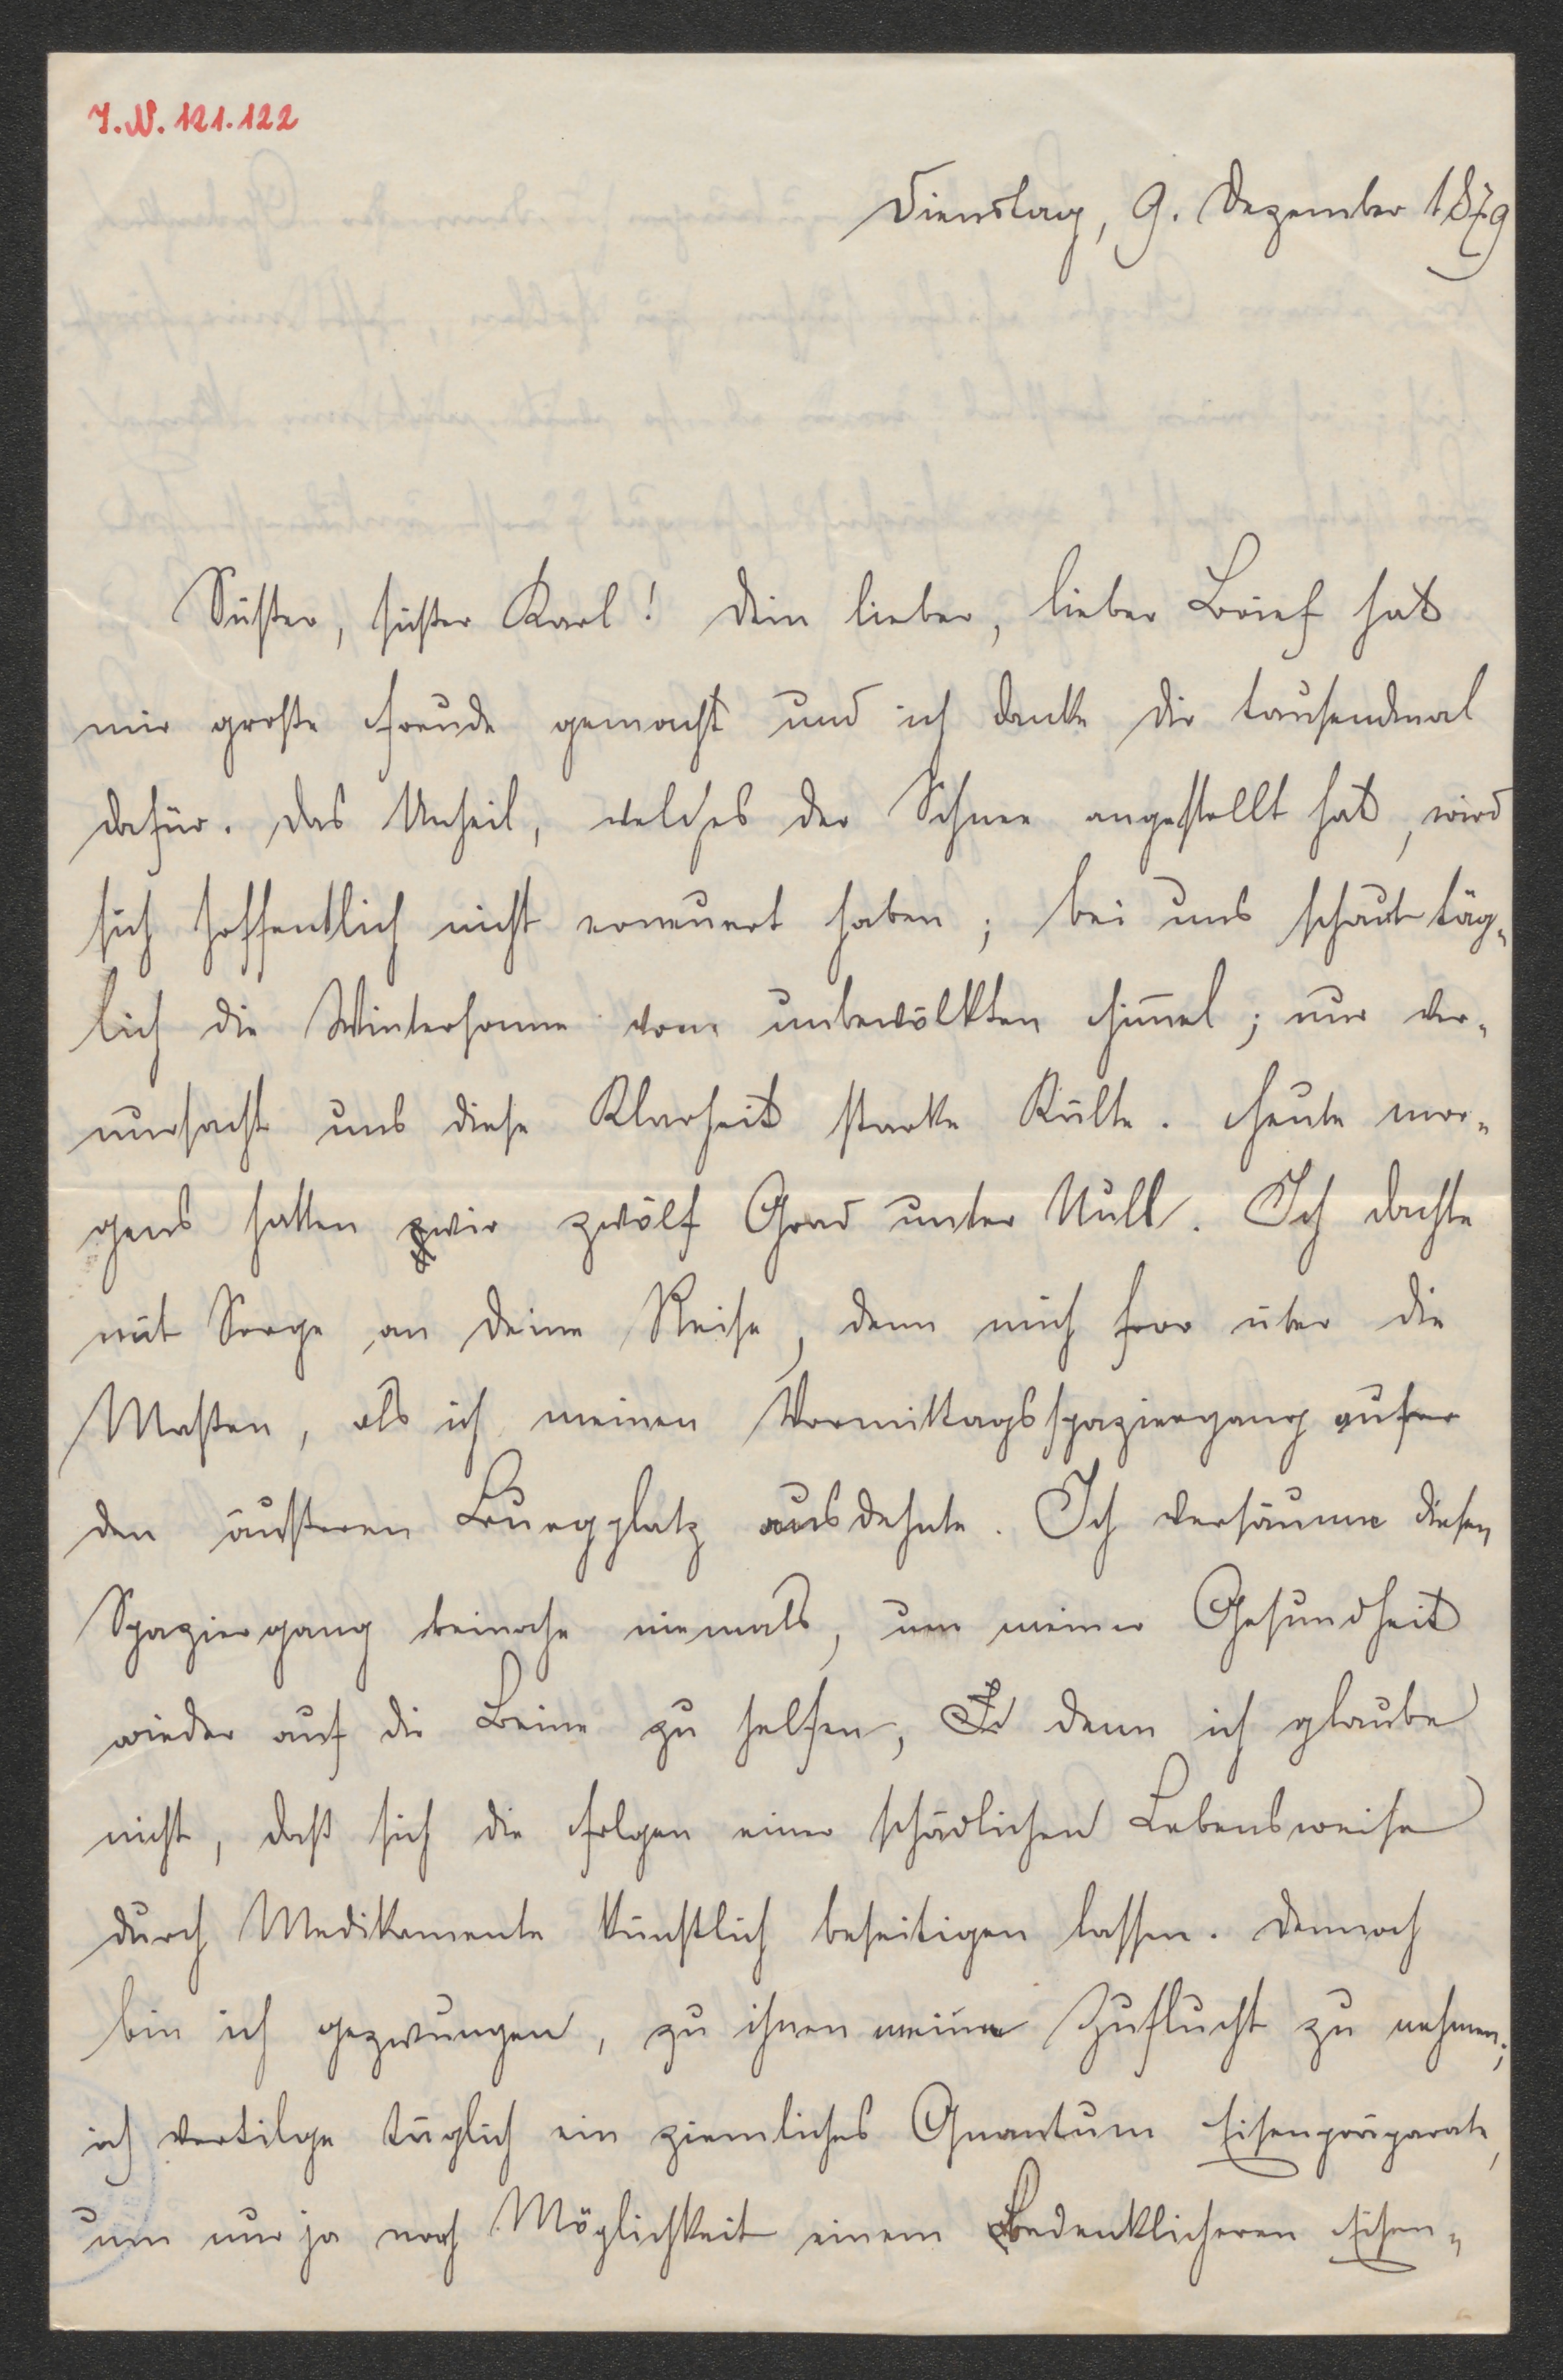 I.N. 121.122
Dienstag, 9. Dezember 1879
Süßer, süßer Karl! Dein lieber, lieber Brief hat
mir große Freude gemacht und ich danke Dir tausendmal
dafür. Das Unheil, welches der Schnee angestellt hat, wird
sich hoffentlich nicht erneuert haben; bei uns schaut täg-
lich die Wintersonne vom unbewölkten Himmel; nur ver-
ursacht uns diese Klarheit starke Kälte. Heute mor-
gens hatten wir zwölf Grad unter Null. Ich dachte
mit Sorge an Deine Reise, denn mich fror über die
Maßen, als ich meinen Vormittagsspaziergang auf
den äußeren Burgplatz ausdehnte. Ich versäume diesen
Spaziergang beinahe niemals, um meiner Gesundheit
wieder auf die Beine zu helfen, denn ich glaube
nicht, daß sich die Folgen einer schädlichen Lebensweise
durch Medikamente künstlich beseitigen lassen. Dennoch
bin ich gezwungen, zu ihnen meine Zuflucht zu nehmen;
ich vertilge täglich ein ziemliches Quantum Eisenpräparate,
um nur ja nach Möglichkeit einem bedenklicheren Eisen-